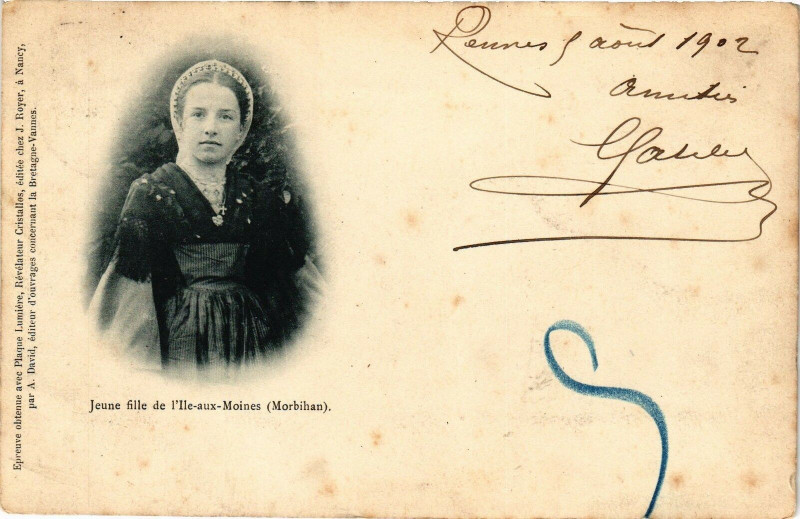 Epreuve obtenue avec Plaque Lumière, Révélateur Cristallos, éditée chez J. Royer, à Nancy,
par A. David, éditeur d'ouvrages concernant la Bretagne-Vannes.
Rennes 5 août 1902
Amitiés
Jeune fille de l'Ile-aux-Moines (Morbihan).